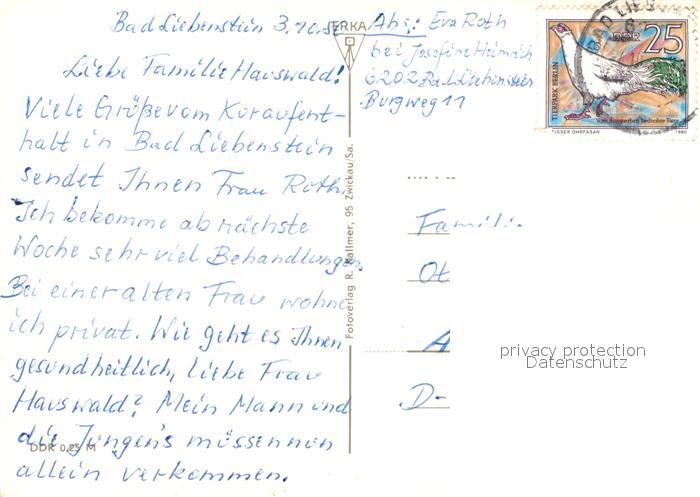 Bad Liebenstein 3.10.
Liebe Familie Hauswald!
Viele Grüße vom Kuraufent-
halt in Bad Liebenstein
sendet Ihnen Frau Roth.
Ich bekomme ab nächste
Woche sehr viel Behandlungen.
Bei einer alten Frau wohne
ich privat. Wie geht es Ihnen
gesundheitlich, liebe Frau
Hauswald? Mein Mann und
die Jungen's müssen nun
allein verkommen.
DDR 0,25 M
ERKA
Fotoverlag R. Kallmer, 95 Zwickau/Sa.
Abs.: Eva Roth
bei Josefine Heimrich
6202 Bad Liebenstein
Burgweg 11
DDR 25
TIERPARK BERLIN
Vom Aussterben bedrohte Tiere
WEISSER OHRFASAN 1980
BAD LIEB
Famili
Ot
A
D-
privacy protection
Datenschutz